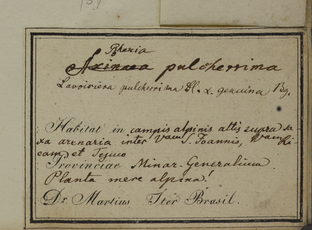 Rhexia
Axinaea pulcherrima
Lavoisiera pulcherrima Bl. α genuina
Habitat in campis alpinis altis supra sa-
xa arenaria inter Vam S. Joannis, Vam Ri
cam et Tejuco
Provinciae Minar. Generalium
Planta mere alpina!
Dr. Martius Iter Brasil.